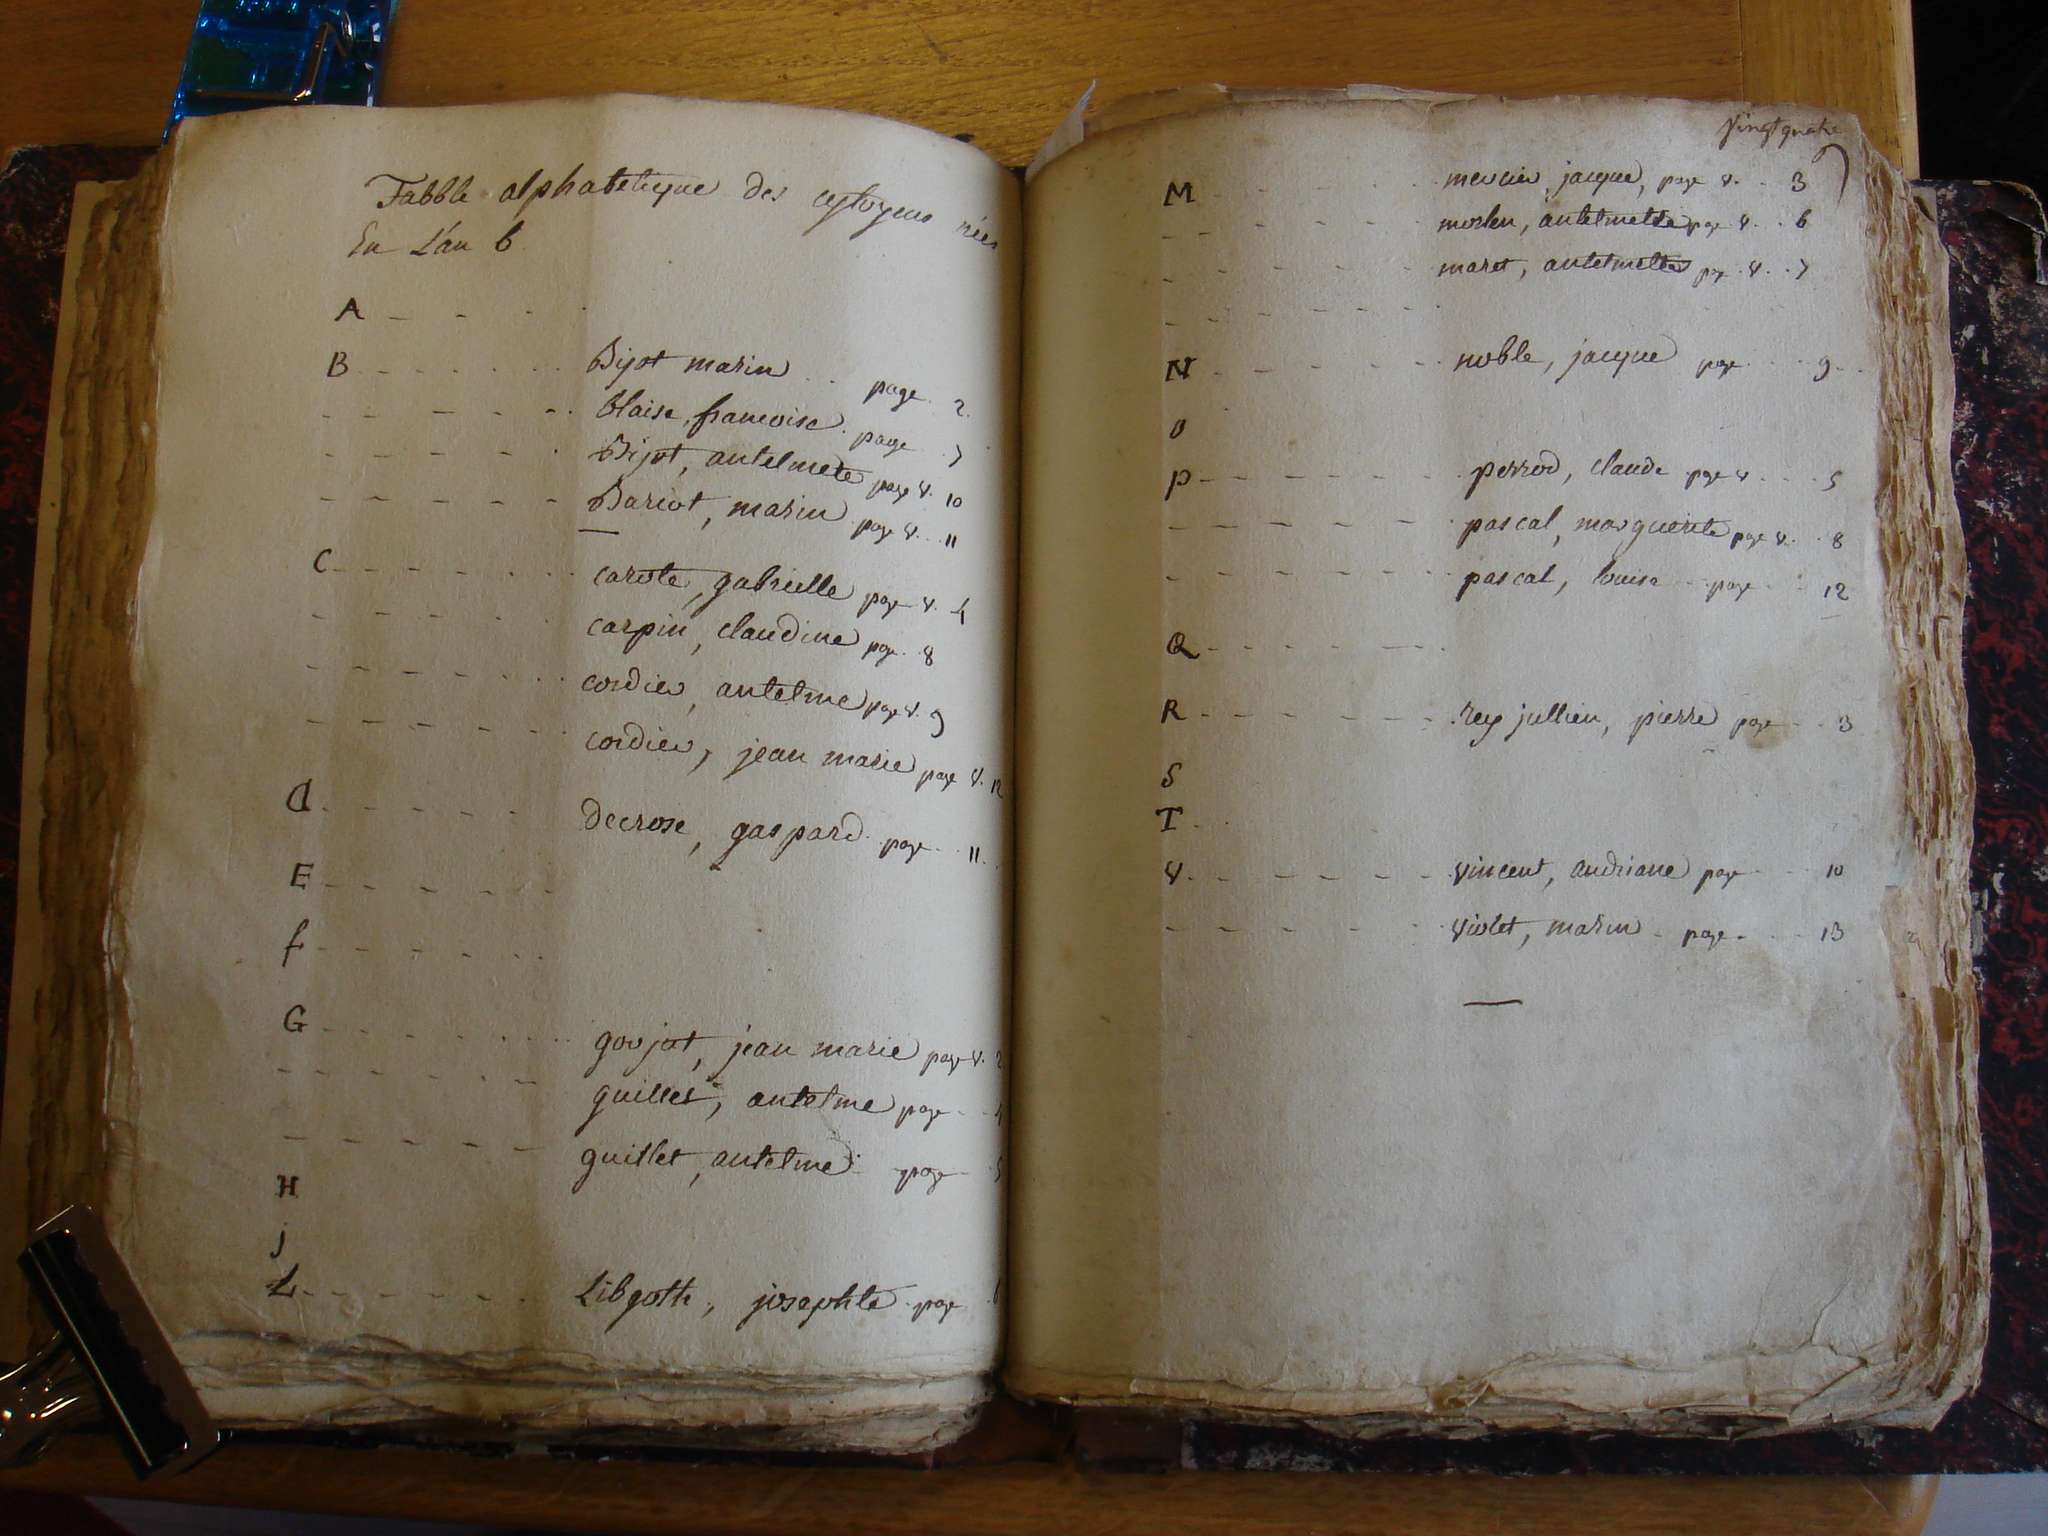 Tabble alphabetique des cytoyens nées
En L'an 6
A
B Bijot marin page 2
blaise, francoise page 7
Bijot, antelmete page v. 10
Bariot, marin page v. 11
C carote, gabrielle page v. 4
carpin, claudine page 8
cordier, antelme page v. 9
cordier, jean marie page v. 12
d decrose, gaspard page 11
E
f
G goujot, jean marie page v. 2
guillet, antelme page 4
guillet, antelme page 5
H
j
L Libgoth, josephte page 6
vingt quatre
M mercier, jacque, page v. 3
morlen, antelmette page v. 6
maret, antelmette page v. 7
N noble, jacque page 9
O
P perrod, claude page v. 5
pascal, marguerite page v. 8
pascal, louise page 12
Q
R rey jullien, pierre page 3
S
T
v vincent, andriane page 10
violet, marin page 13